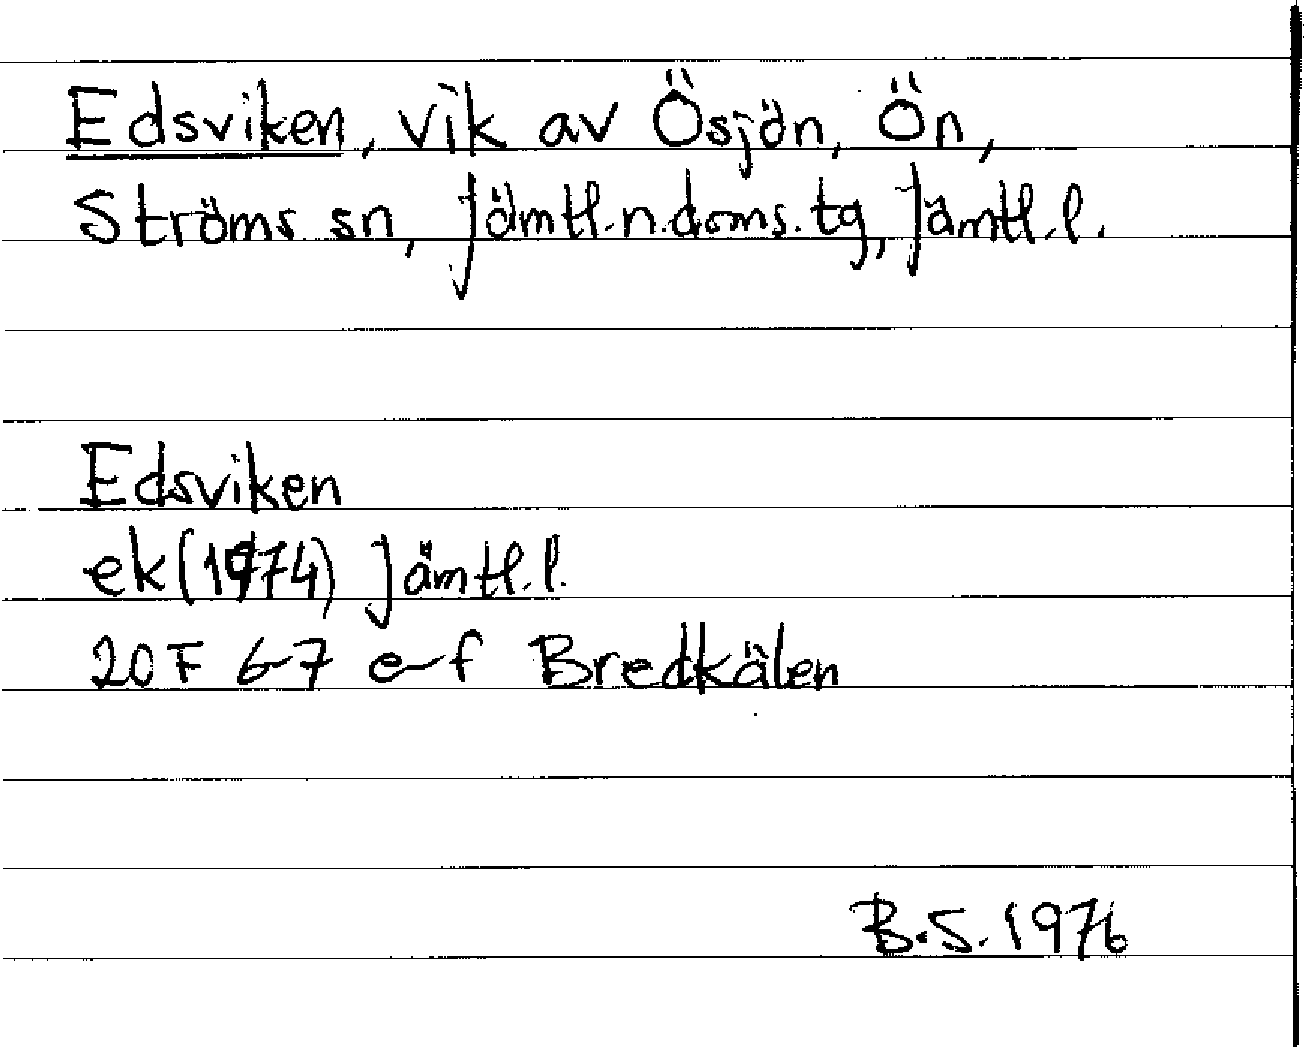 Edsviken, vik av Ösjön, Ön,
Ströms sn, Jämtl.n.doms.tg, Jämtl.l.
Edsviken
ek(1974) Jämtl.l.
20F 6-7 e-f Bredkälen
B.S. 1976